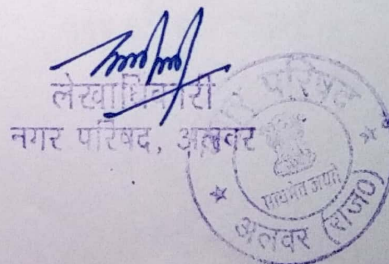 लेखाधिकारी
नगर परिषद, अलवर
नगर परिषद
सत्यमेव जयते
अलवर (राज०)